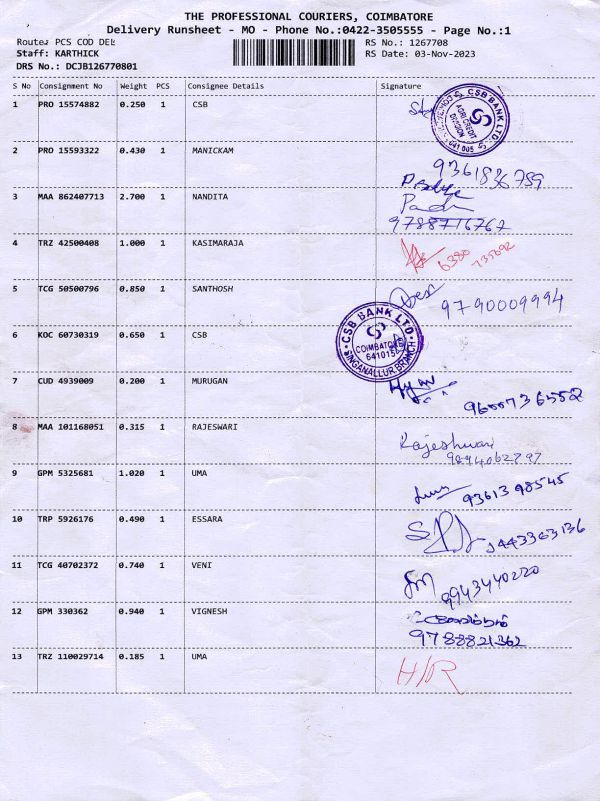 THE PROFESSIONAL COURIERS, COIMBATORE
Delivery Runsheet - MO - Phone No.:0422-3505555 - Page No.:1
Route: PCS COD DEL
RS No.: 1267708
Staff: KARTHICK
RS Date: 03-Nov-2023
DRS No.: DCJB126770801
S No Consignment No Weight PCS Consignee Details Signature
1 PRO 15574882 0.250 1 CSB
CSB BANK LTD.
AGRI CREDIT
DIVISION
641 005
2 PRO 15593322 0.430 1 MANICKAM
9361836789
3 MAA 862407713 2.700 1 NANDITA
Padr
9788716767
4 TRZ 42500408 1.000 1 KASIMARAJA
6380
735692
5 TCG 50500796 0.850 1 SANTHOSH
9790009994
6 KOC 60730319 0.650 1 CSB
CSB BANK LTD
COIMBATORE
641015
SINGANALLUR BRANCH
7 CUD 4939009 0.200 1 MURUGAN
9600736552
8 MAA 101168051 0.315 1 RAJESWARI
Rajeshwari
9894062797
9 GPM 5325681 1.020 1 UMA
9361398545
10 TRP 5926176 0.490 1 ESSARA
9443363136
11 TCG 40702372 0.740 1 VENI
9943440220
12 GPM 330362 0.940 1 VIGNESH
9788821362
13 TRZ 110029714 0.185 1 UMA
H/R